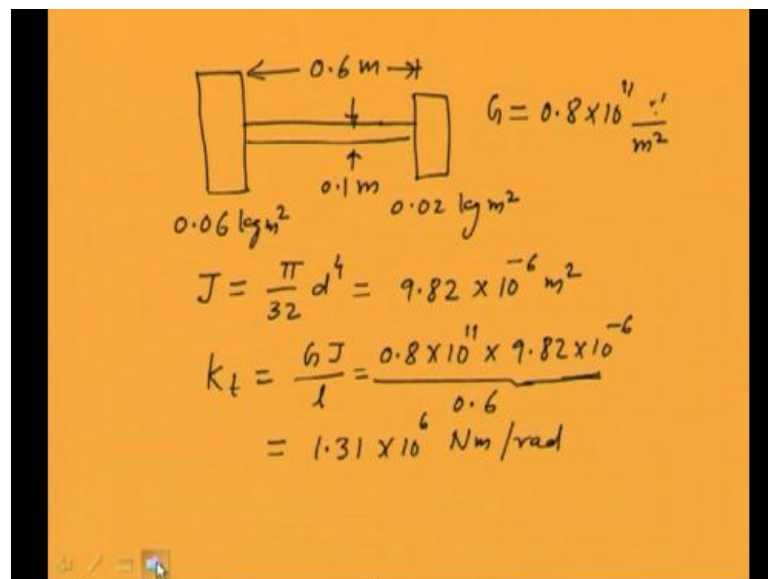 0.6 m
G = 0.8 × 10¹¹ / m²
0.1 m
0.06 kg m²
0.02 kg m²
J = π/32 d⁴ = 9.82 × 10⁻⁶ m²
Kt = GJ/l = 0.8 × 10¹¹ × 9.82 × 10⁻⁶ / 0.6
= 1.31 × 10⁶ Nm/rad